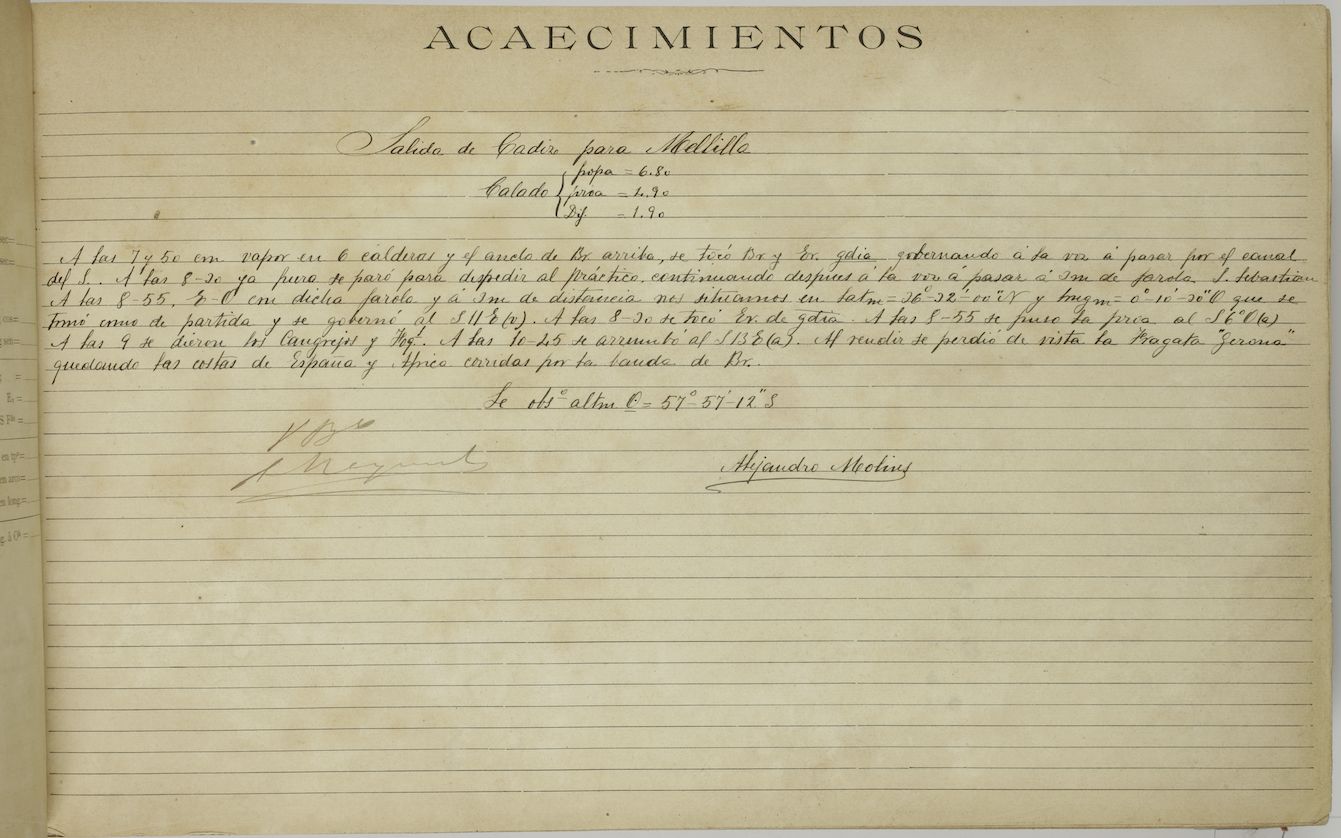 ACAECIMIENTOS
Salida de Cadiz para Mellilla
popa = 6.80
Calado proa = 4.90
Dif. = 1.90
A las 7 y 50 con vapor en 6 calderas y el ancla de Br. arriba, se tocó Br. y Er. gdia gobernando á la voz á pasar por el canal
del S. A las 8-20 ya fuera se paró para despedir al práctico, continuando despues á la voz á pasar á 3m de farola S. Sebastian
A las 8-55, E-O con dicha farola y á 3m de distancia nos situamos en lat m = 36°-32'-00"N y long m = 0°-10'-20"O que se
tomó como de partida y se gobernó al S11E(v). A las 8-30 se tocó Er. de gdia. A las 8-55 se puso la proa al S6°O(a)
A las 9 se dieron los Cangrejos y Foq. A las 10-25 se arrumbó al S13E(a). Al rendir se perdió de vista la Fragata "Gerona"
quedando las costas de España y Africa corridas por la banda de Br.
Se obs° altm O = 57°-57'-12" S
V° B°
Alejandro Molins